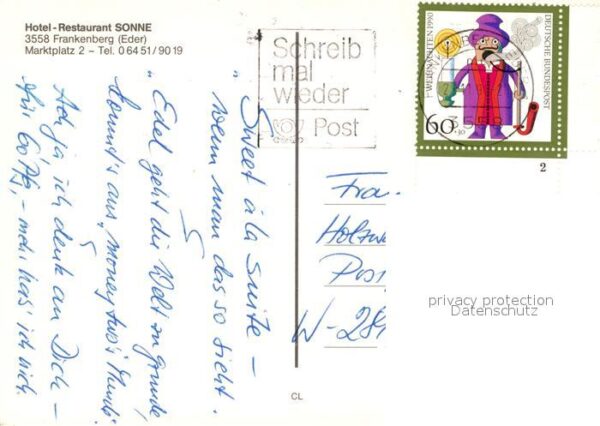 Hotel - Restaurant SONNE
3558 Frankenberg (Eder)
Marktplatz 2 – Tel. 0 64 51 / 90 19
Schreib
mal
wieder
Post
WEIHNACHTEN 1990
DEUTSCHE BUNDESPOST
60
+30
2
„Sweet à la Suite –
wenn man das so sieht.
„Edel geht die Welt zu Grunde,
kommt's aus,
Ach ja ich denk an Dich –
für 60 Pfg, – mehr hab' ich nich.
Frau
Holzw
Pos
W-284
privacy protection
Datenschutz
CL